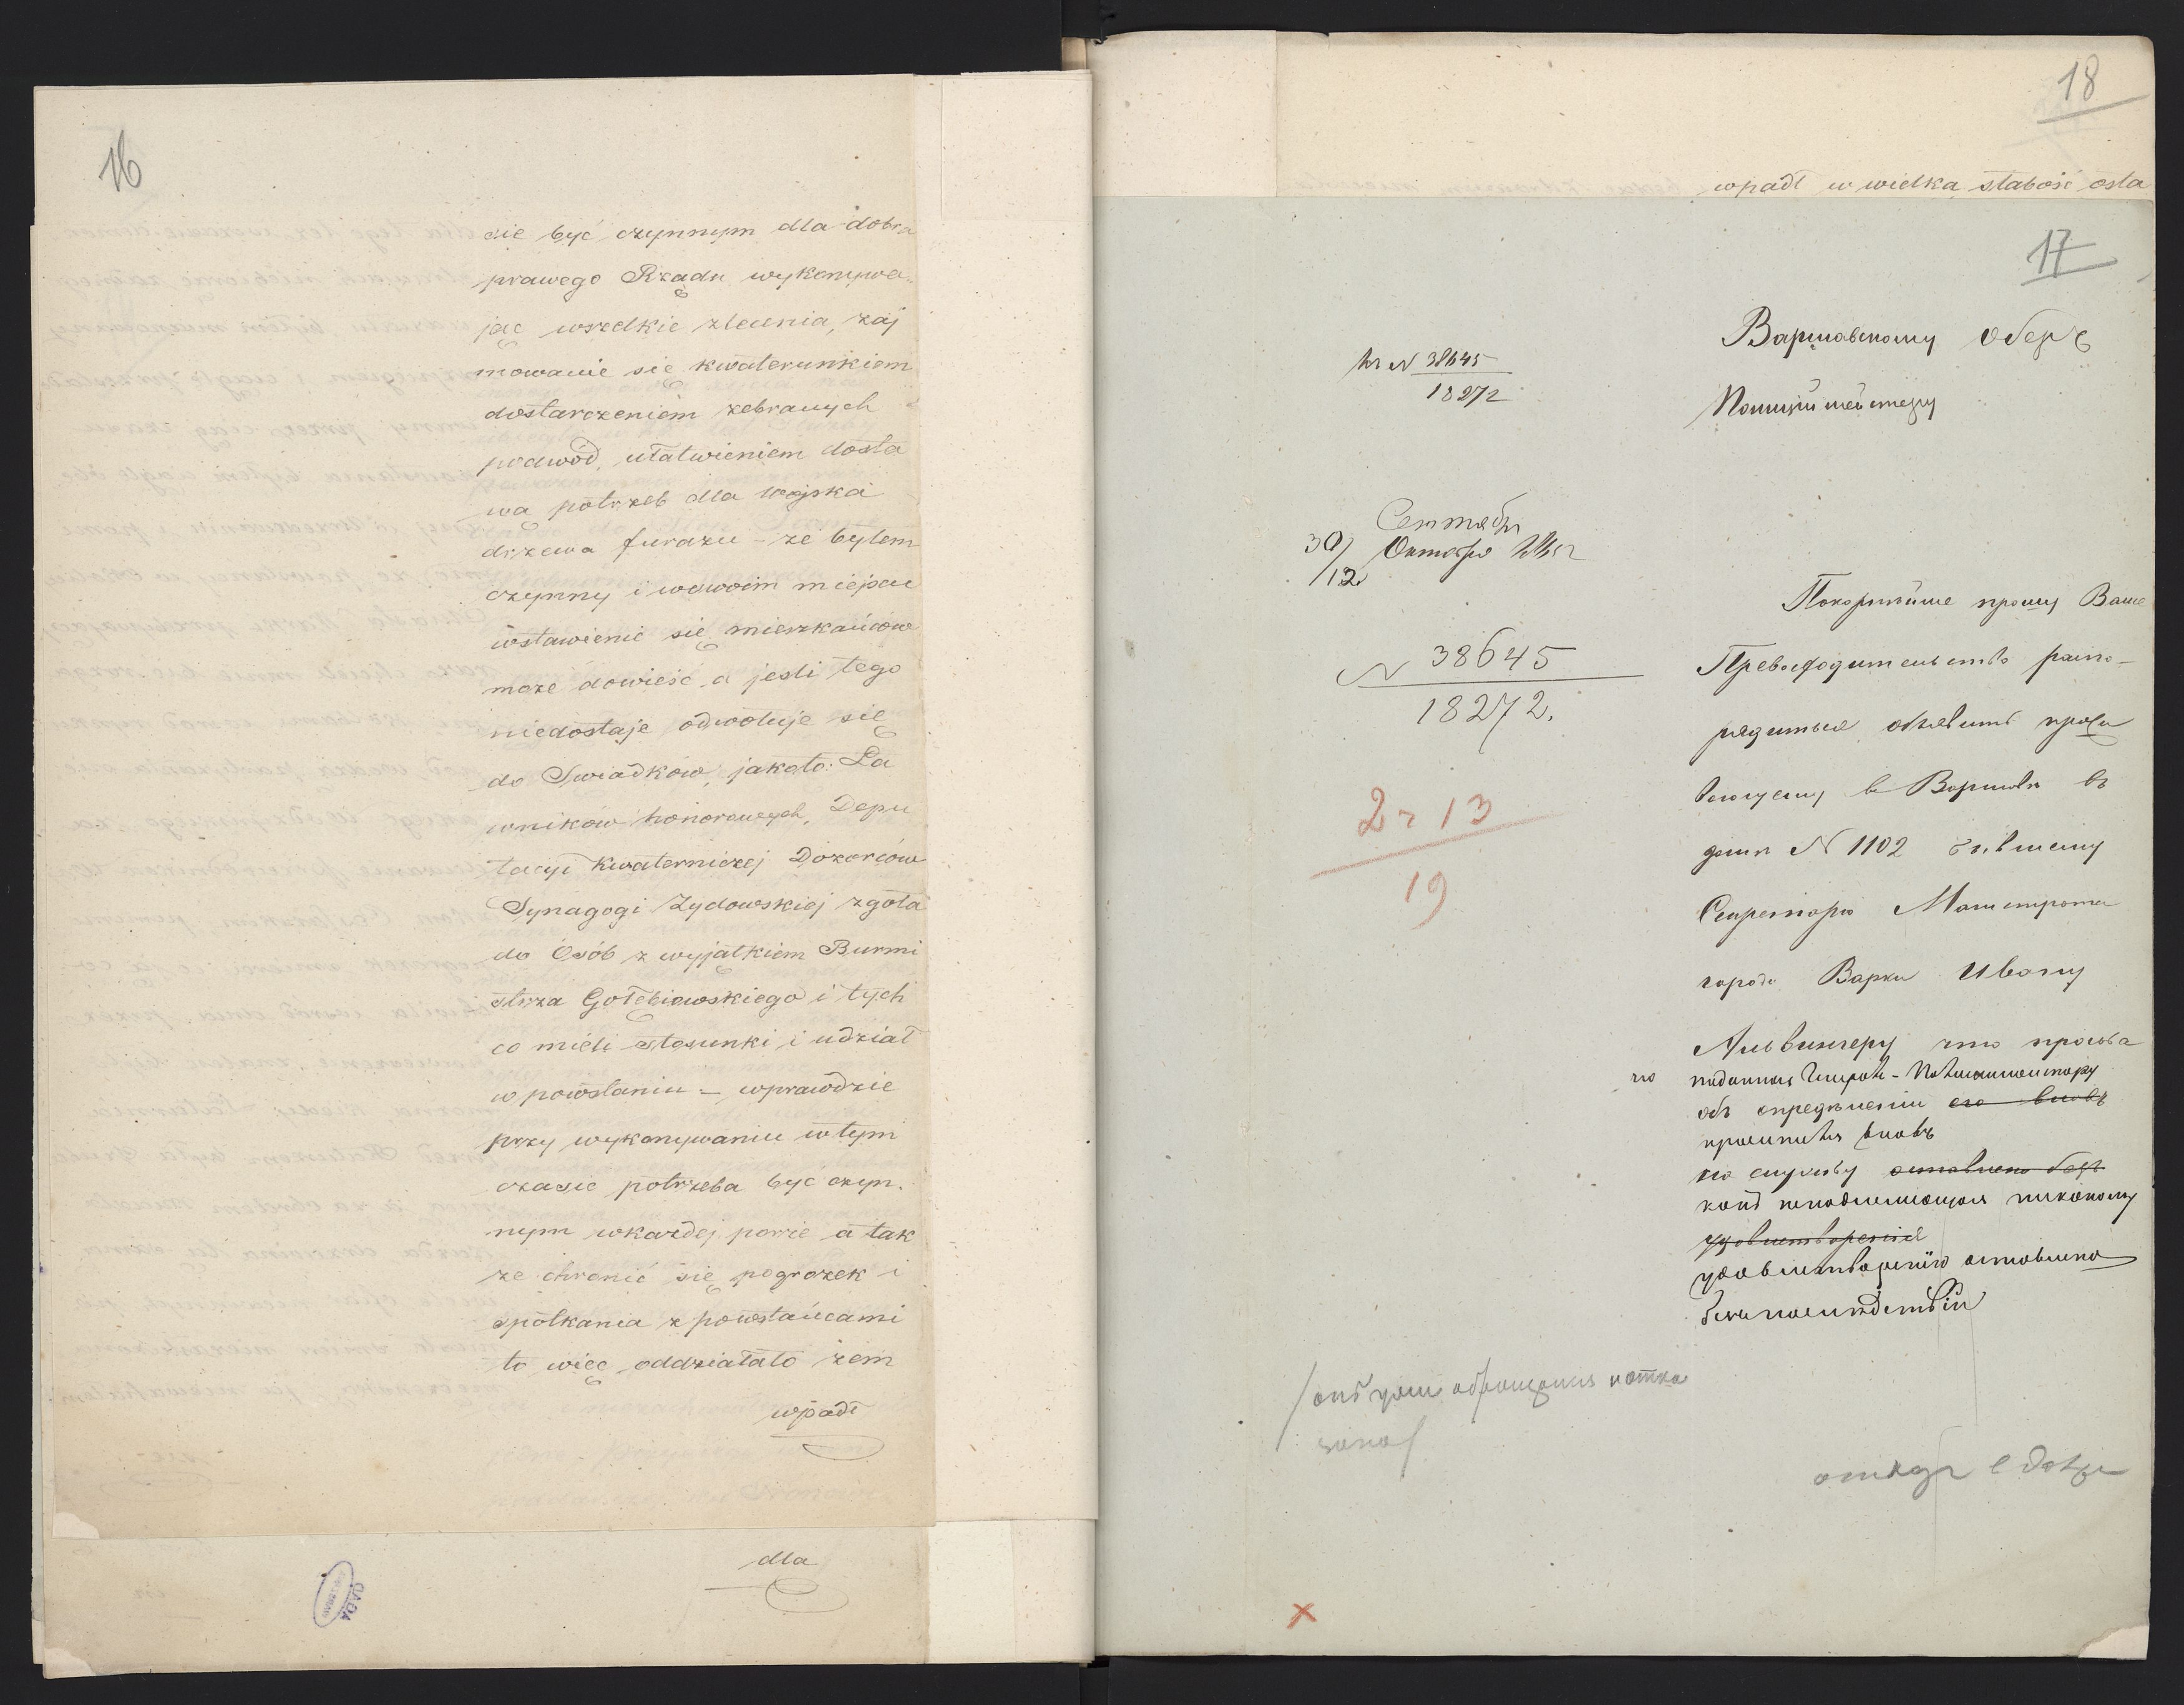 16
się być czynnym dla dobra
prawego Rządu wykonywa
jąc wszelkie zlecenia, zaj
mowanie się kwaterunkiem
dostarczeniem zebranych
podwód, ułatwieniem dosta
wą potrzeb dla wojska
drzewa furażu – że byłem
czynny i wswoim miejscu
wstawienie się mieszkańców
może dowieść a jeśli tego
niedostaje odwołuje się
do Swiadków, jakoto: Ła
wników honorowych, Depu
tacyi Kwaterniczej Dozorców
Synagogi Żydowskiej zgoła
do Osób z wyjątkiem Burmi
strza Gołębiowskiego i tych
co mieli stosunki i udział
w powstaniu – wprawdzie
przy wykonywaniu wtym
czasie potrzeba być czyn
nym wkażdej porze a tak
że chronić się pogrozek i
spotkania z powstańcami
to więc oddziałało żem
wpadł
dla
18
wpadł w wielką słabość osta
17
Варшавскому Оберъ
Полицiймейстеру
N 38645
18272
Сентября
30/ Октября
12
N 38645
18272.
2 r 13
19
Покорнѣйше прошу Ваше
Превосходительство распо-
рядиться объявить прожи
вающему въ Варшавѣ въ
домѣ N 1102 бывшему
Секретарю Магистрата
города Варки Ивану
что просьба
поданная
объ опредѣленiи его вновь
вновь
на службу оставлена безъ
какъ неподлежащая никакому
удовлетворенiя
удовлетворенiю оставлена
безъ послѣдствiй